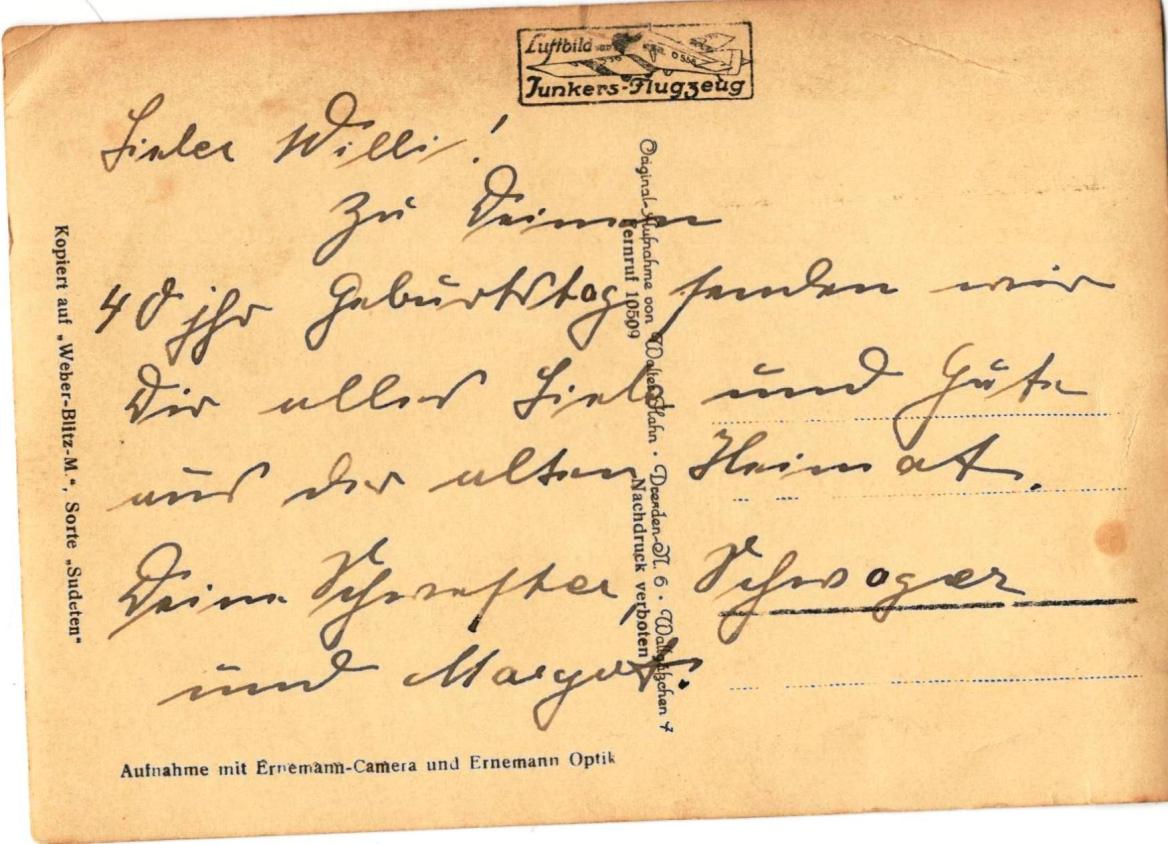 Luftbild
Junkers-Flugzeug
Lieber Willi!
Zu Deinem
40 jhr Geburtstag senden wir
Dir alles Liebe und Gute
aus der alten Heimat.
Deine Schwester, Schwager
und Margot.
Original-Aufnahme von Walter Hahn · Dresden-N. 6 · Wallgäßchen 4
Fernruf 10509 Nachdruck verboten
Kopiert auf „Weber-Blitz-M.“, Sorte „Sudeten“
Aufnahme mit Ernemann-Camera und Ernemann Optik